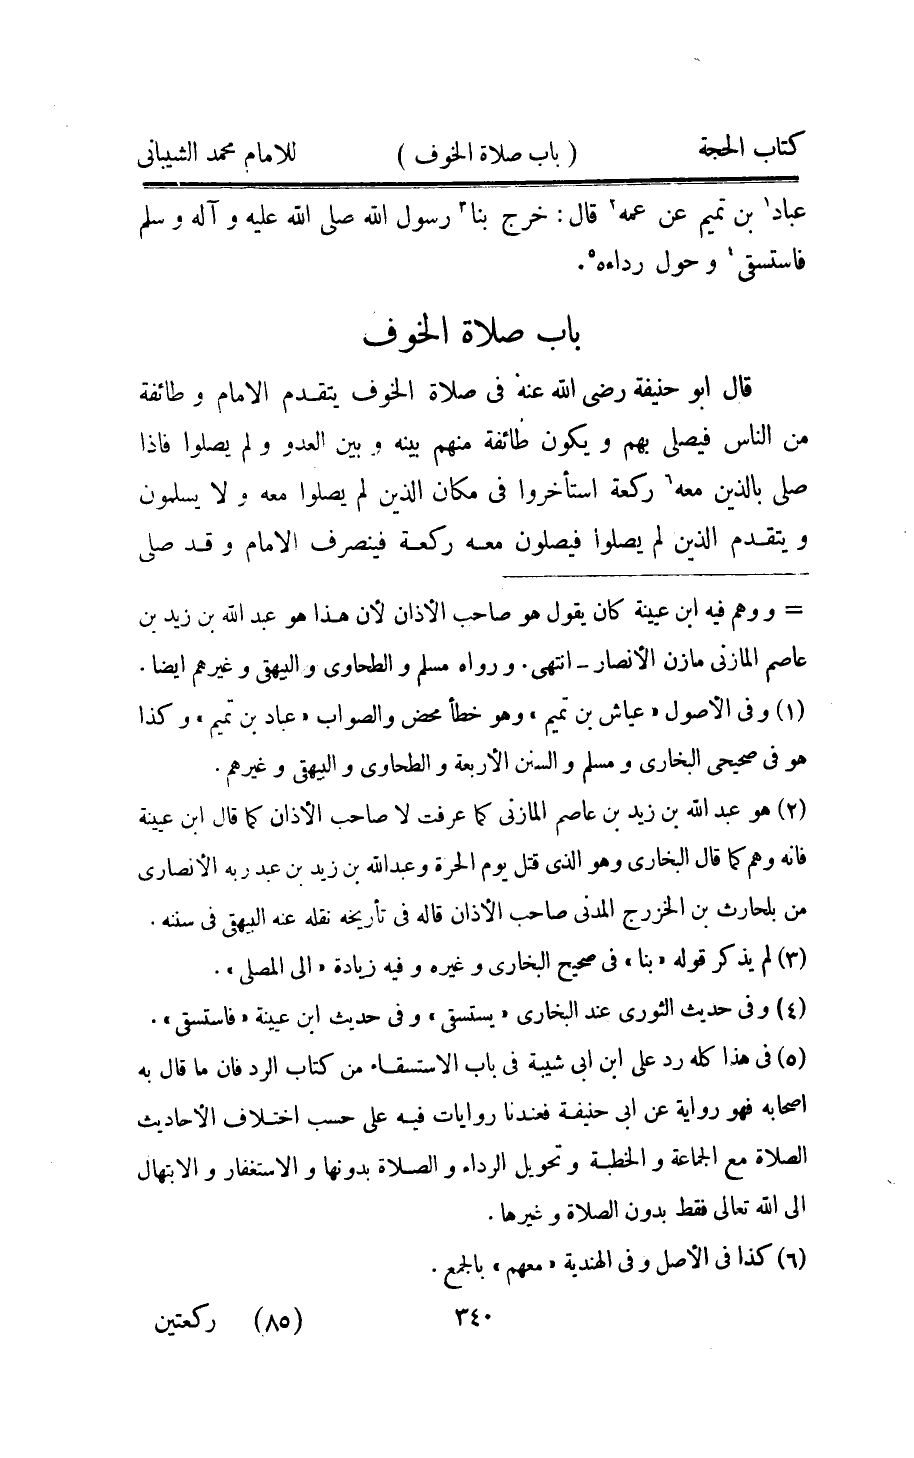 كتاب الحجة ( باب صلاة الخوف ) للامام محمد الشيبانى
عباد١ بن تميم عن عمه٢ قال : خرج بنا٣ رسول الله صلى الله عليه و آله و سلم
فاستسقى٤ و حول رداءه٥.
باب صلاة الخوف
قال ابو حنيفة رضى الله عنه فى صلاة الخوف يتقدم الامام و طائفة
من الناس فيصلى بهم و يكون طائفة منهم بينه و بين العدو و لم يصلوا فاذا
صلى بالذين معه٦ ركعة استأخروا فى مكان الذين لم يصلوا معه و لا يسلمون
و يتقدم الذين لم يصلوا فيصلون معه ركعة فينصرف الامام و قد صلى
= و وهم فيه ابن عيينة كان يقول هو صاحب الأذان لأن هذا هو عبد الله بن زيد بن
عاصم المازنى مازن الأنصار ـ انتهى. و رواه مسلم و الطحاوى و البيهقى و غيرهم ايضا .
(١) و فى الأصول « عياش بن تميم » وهو خطأ محض والصواب « عباد بن تميم » و كذا
هو فى صحيحى البخارى و مسلم و السنن الأربعة و الطحاوى و البيهقى و غيرهم .
(٢) هو عبد الله بن زيد بن عاصم المازنى كما عرفت لا صاحب الأذان كما قال ابن عيينة
فانه وهم كما قال البخارى وهو الذى قتل يوم الحرة وعبدالله بن زيد بن عبد ربه الأنصارى
من بلحارث بن الخزرج المدنى صاحب الأذان قاله فى تأريخه نقله عنه البيهقى فى سننه .
(٣) لم يذكر قوله « بنا » فى صحيح البخارى و غيره و فيه زيادة « الى المصلى » .
(٤) و فى حديث الثورى عند البخارى « يستسقى » و فى حديث ابن عيينة « فاستسقى » .
(٥) فى هذا كله رد على ابن ابى شيبة فى باب الاستسقاء من كتاب الرد فان ما قال به
اصحابه فهو رواية عن ابى حنيفة فعندنا روايات فيه على حسب اختلاف الأحاديث
الصلاة مع الجماعة و الخطبة و تحويل الرداء و الصلاة بدونها و الاستغفار و الابتهال
الى الله تعالى فقط بدون الصلاة و غيرها .
(٦) كذا فى الأصل و فى الهندية « معهم » بالجمع .
٣٤٠ (٨٥) ركعتين